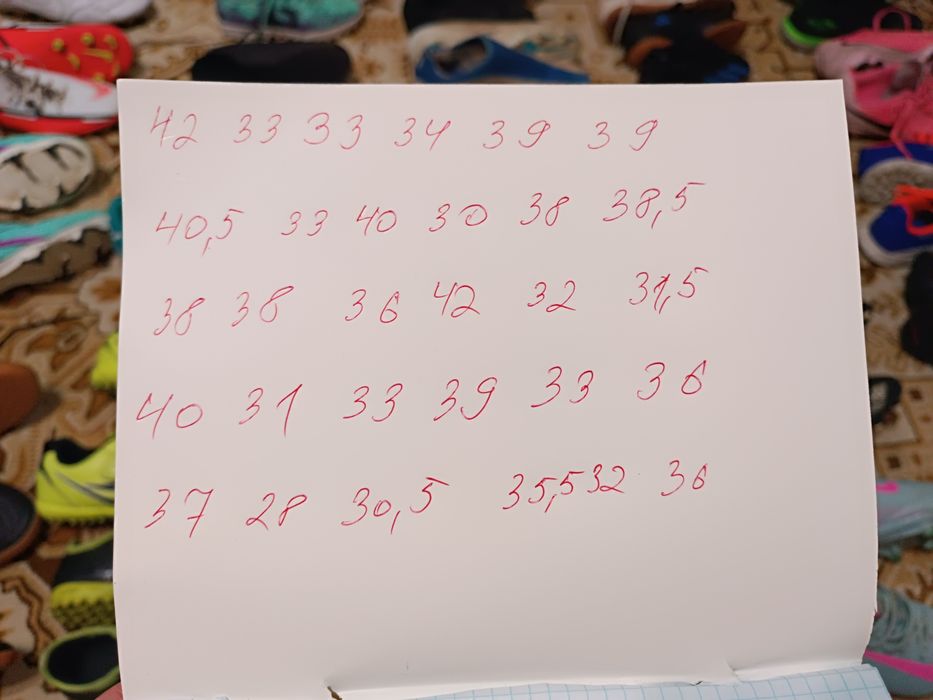 42 33 33 34 39 39
40,5 33 40 30 38 38,5
38 38 36 42 32 31,5
40 31 33 39 33 36
37 28 30,5 35,5 32 36